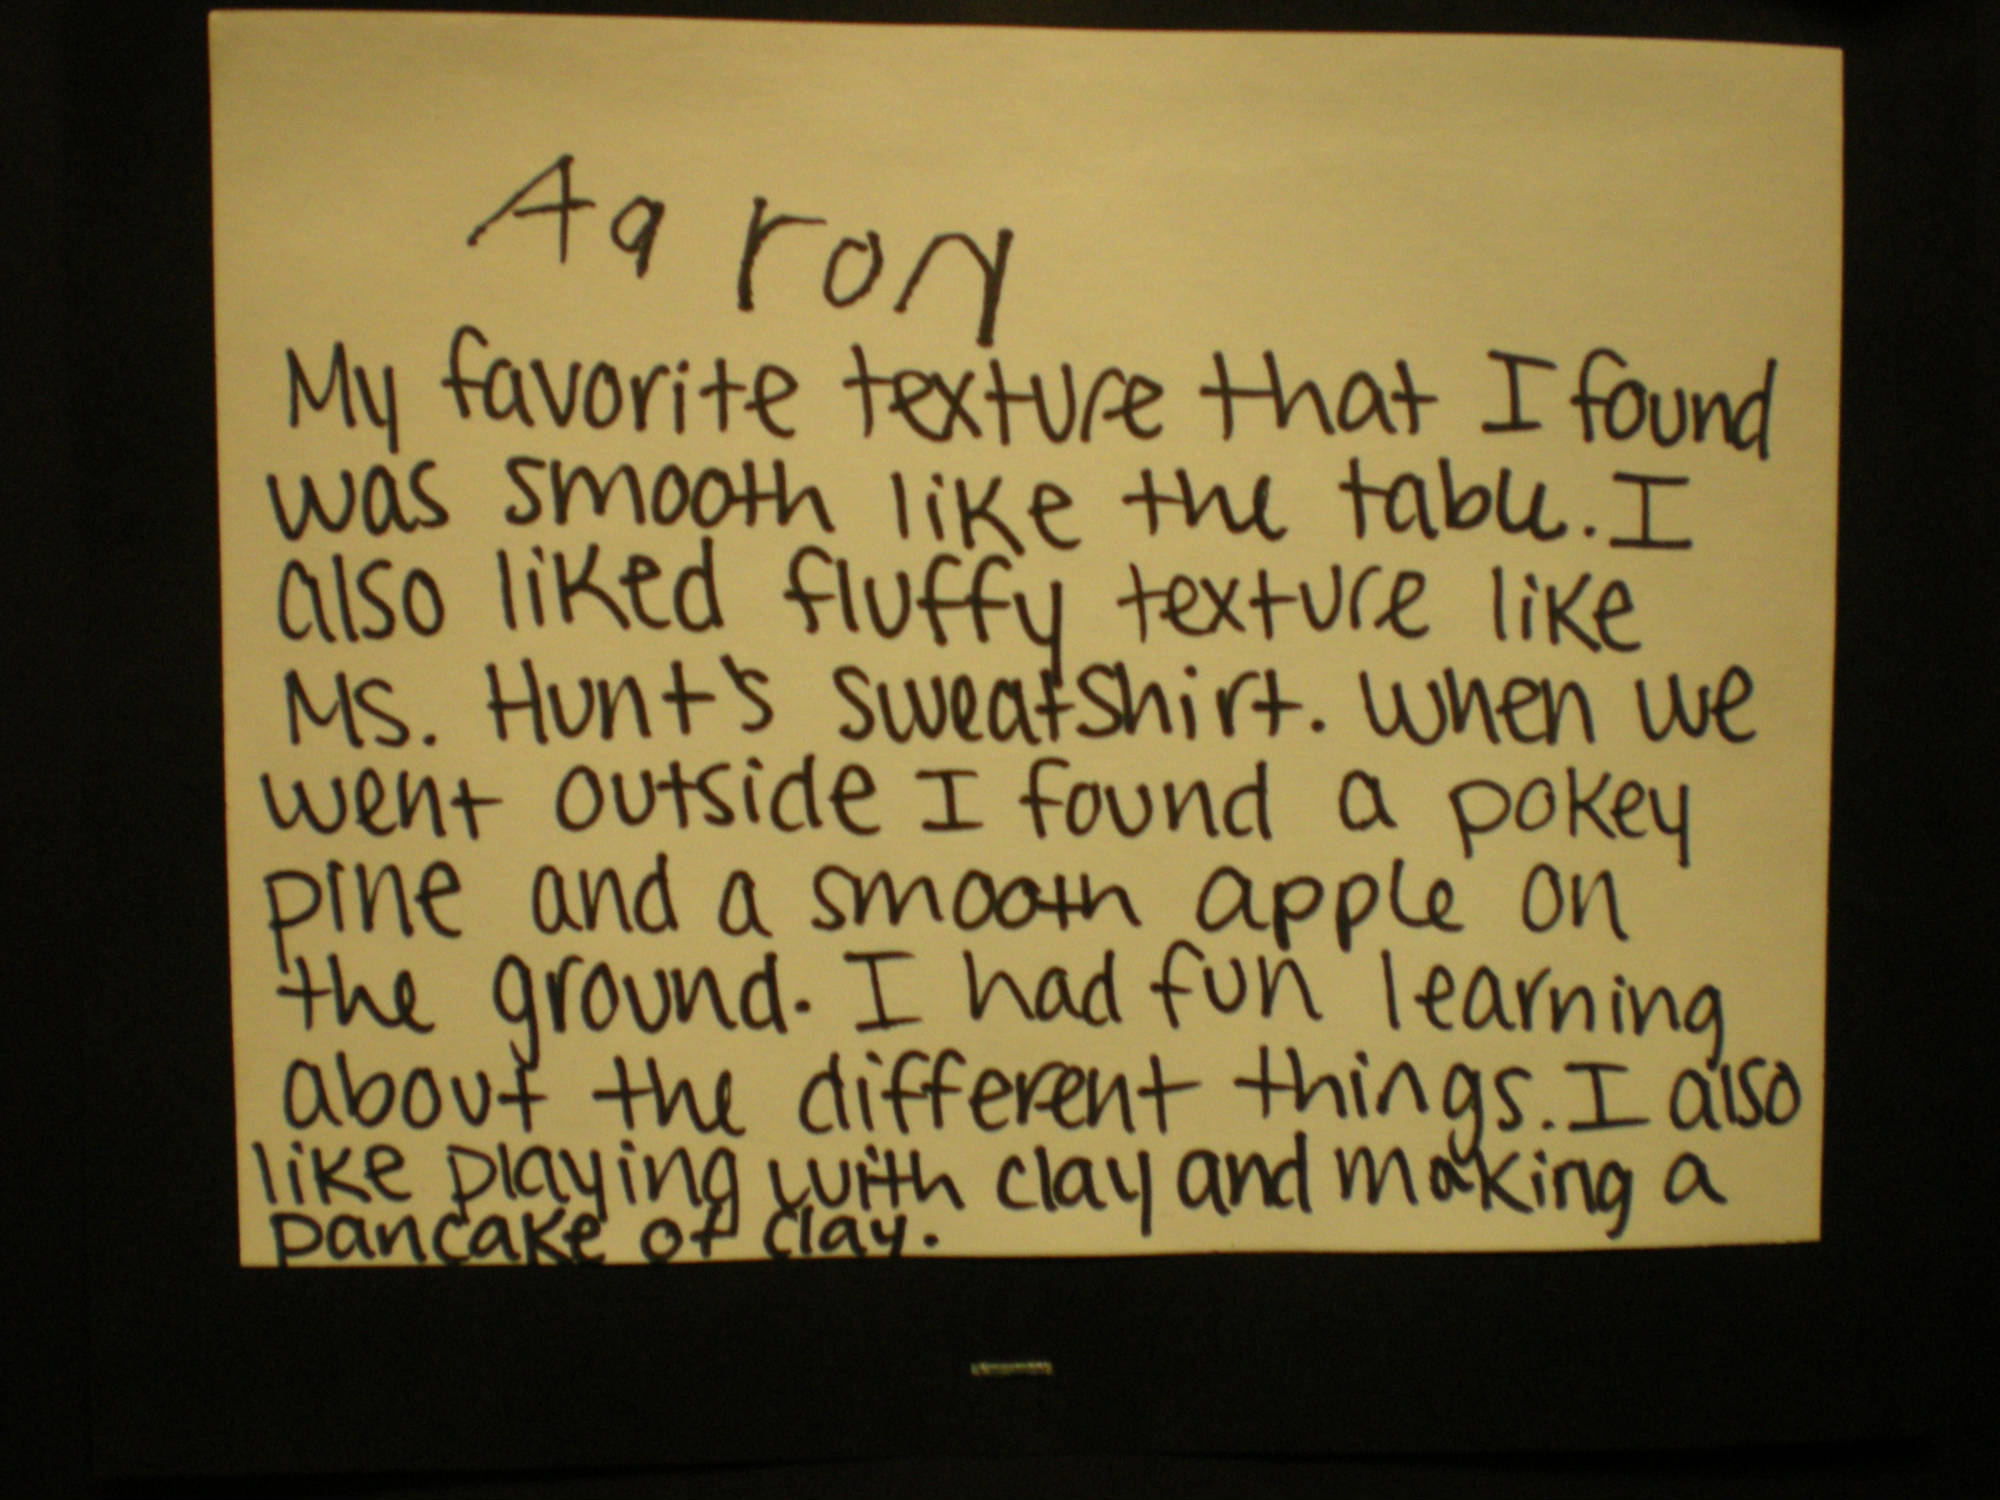 Aaron
My favorite texture that I found
was smooth like the table. I
also liked fluffy texture like
Ms. Hunt's sweatshirt. When we
went outside I found a pokey
pine and a smooth apple on
the ground. I had fun learning
about the different things. I also
like playing with clay and making a
pancake of clay.